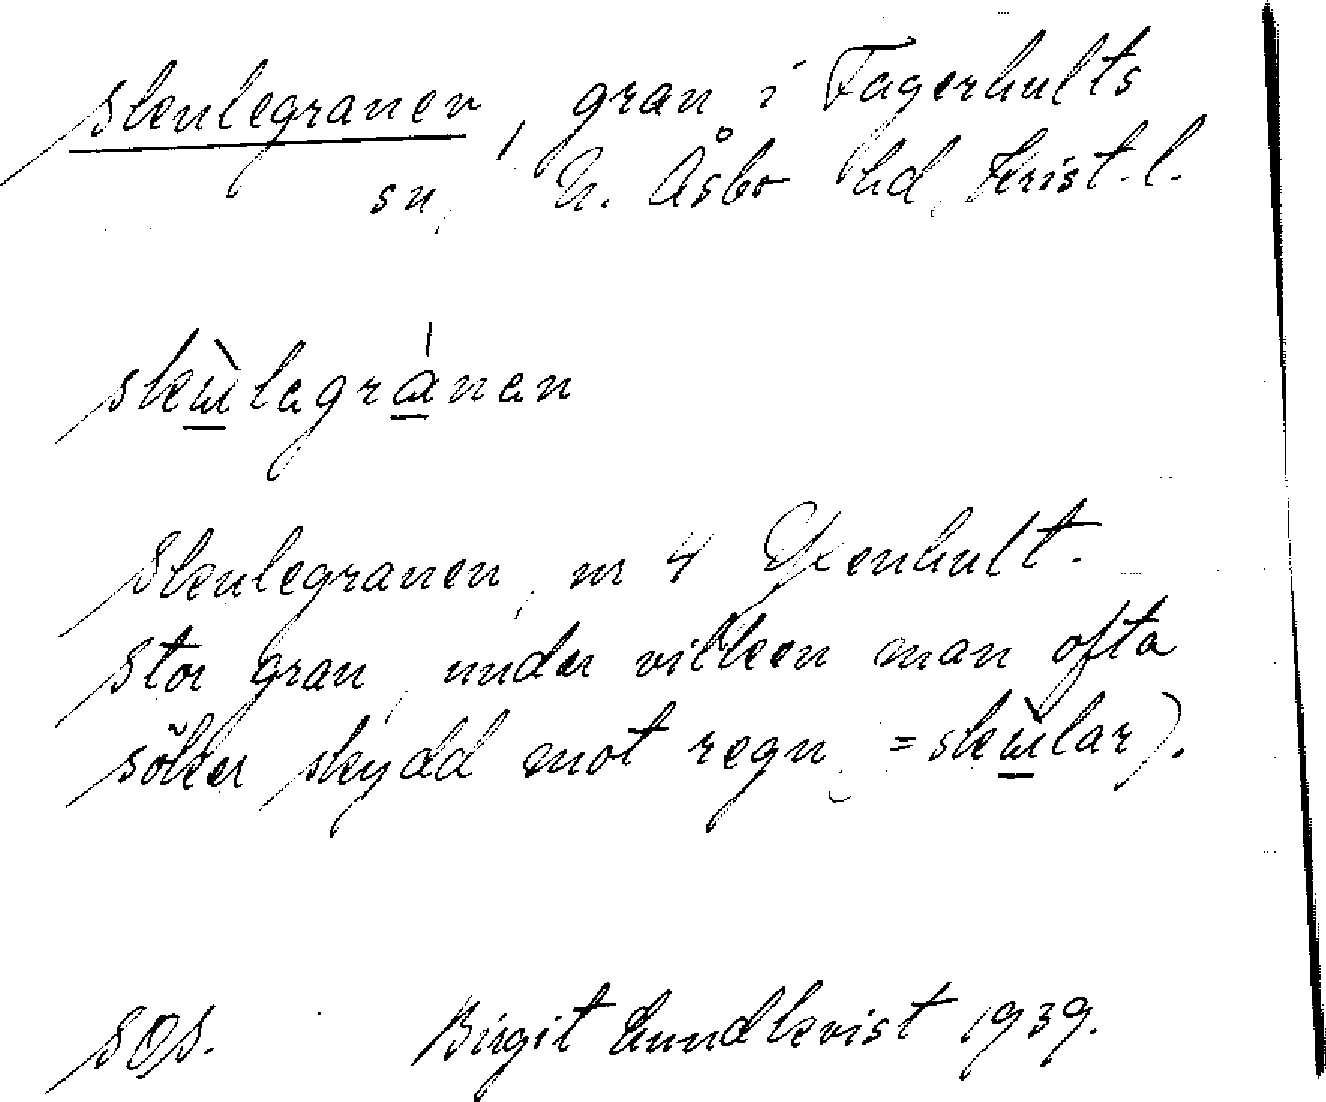 Skulegranen, gran i Fagerhults
sn, N. Åsbo hd, Krist. l.
skùlegránen
Skulegranen, nr 4 Ekenhult.
Stor gran, under vilken man ofta
söker skydd mot regn (= skùlar).
SOS. Birgit Lundkvist 1939.